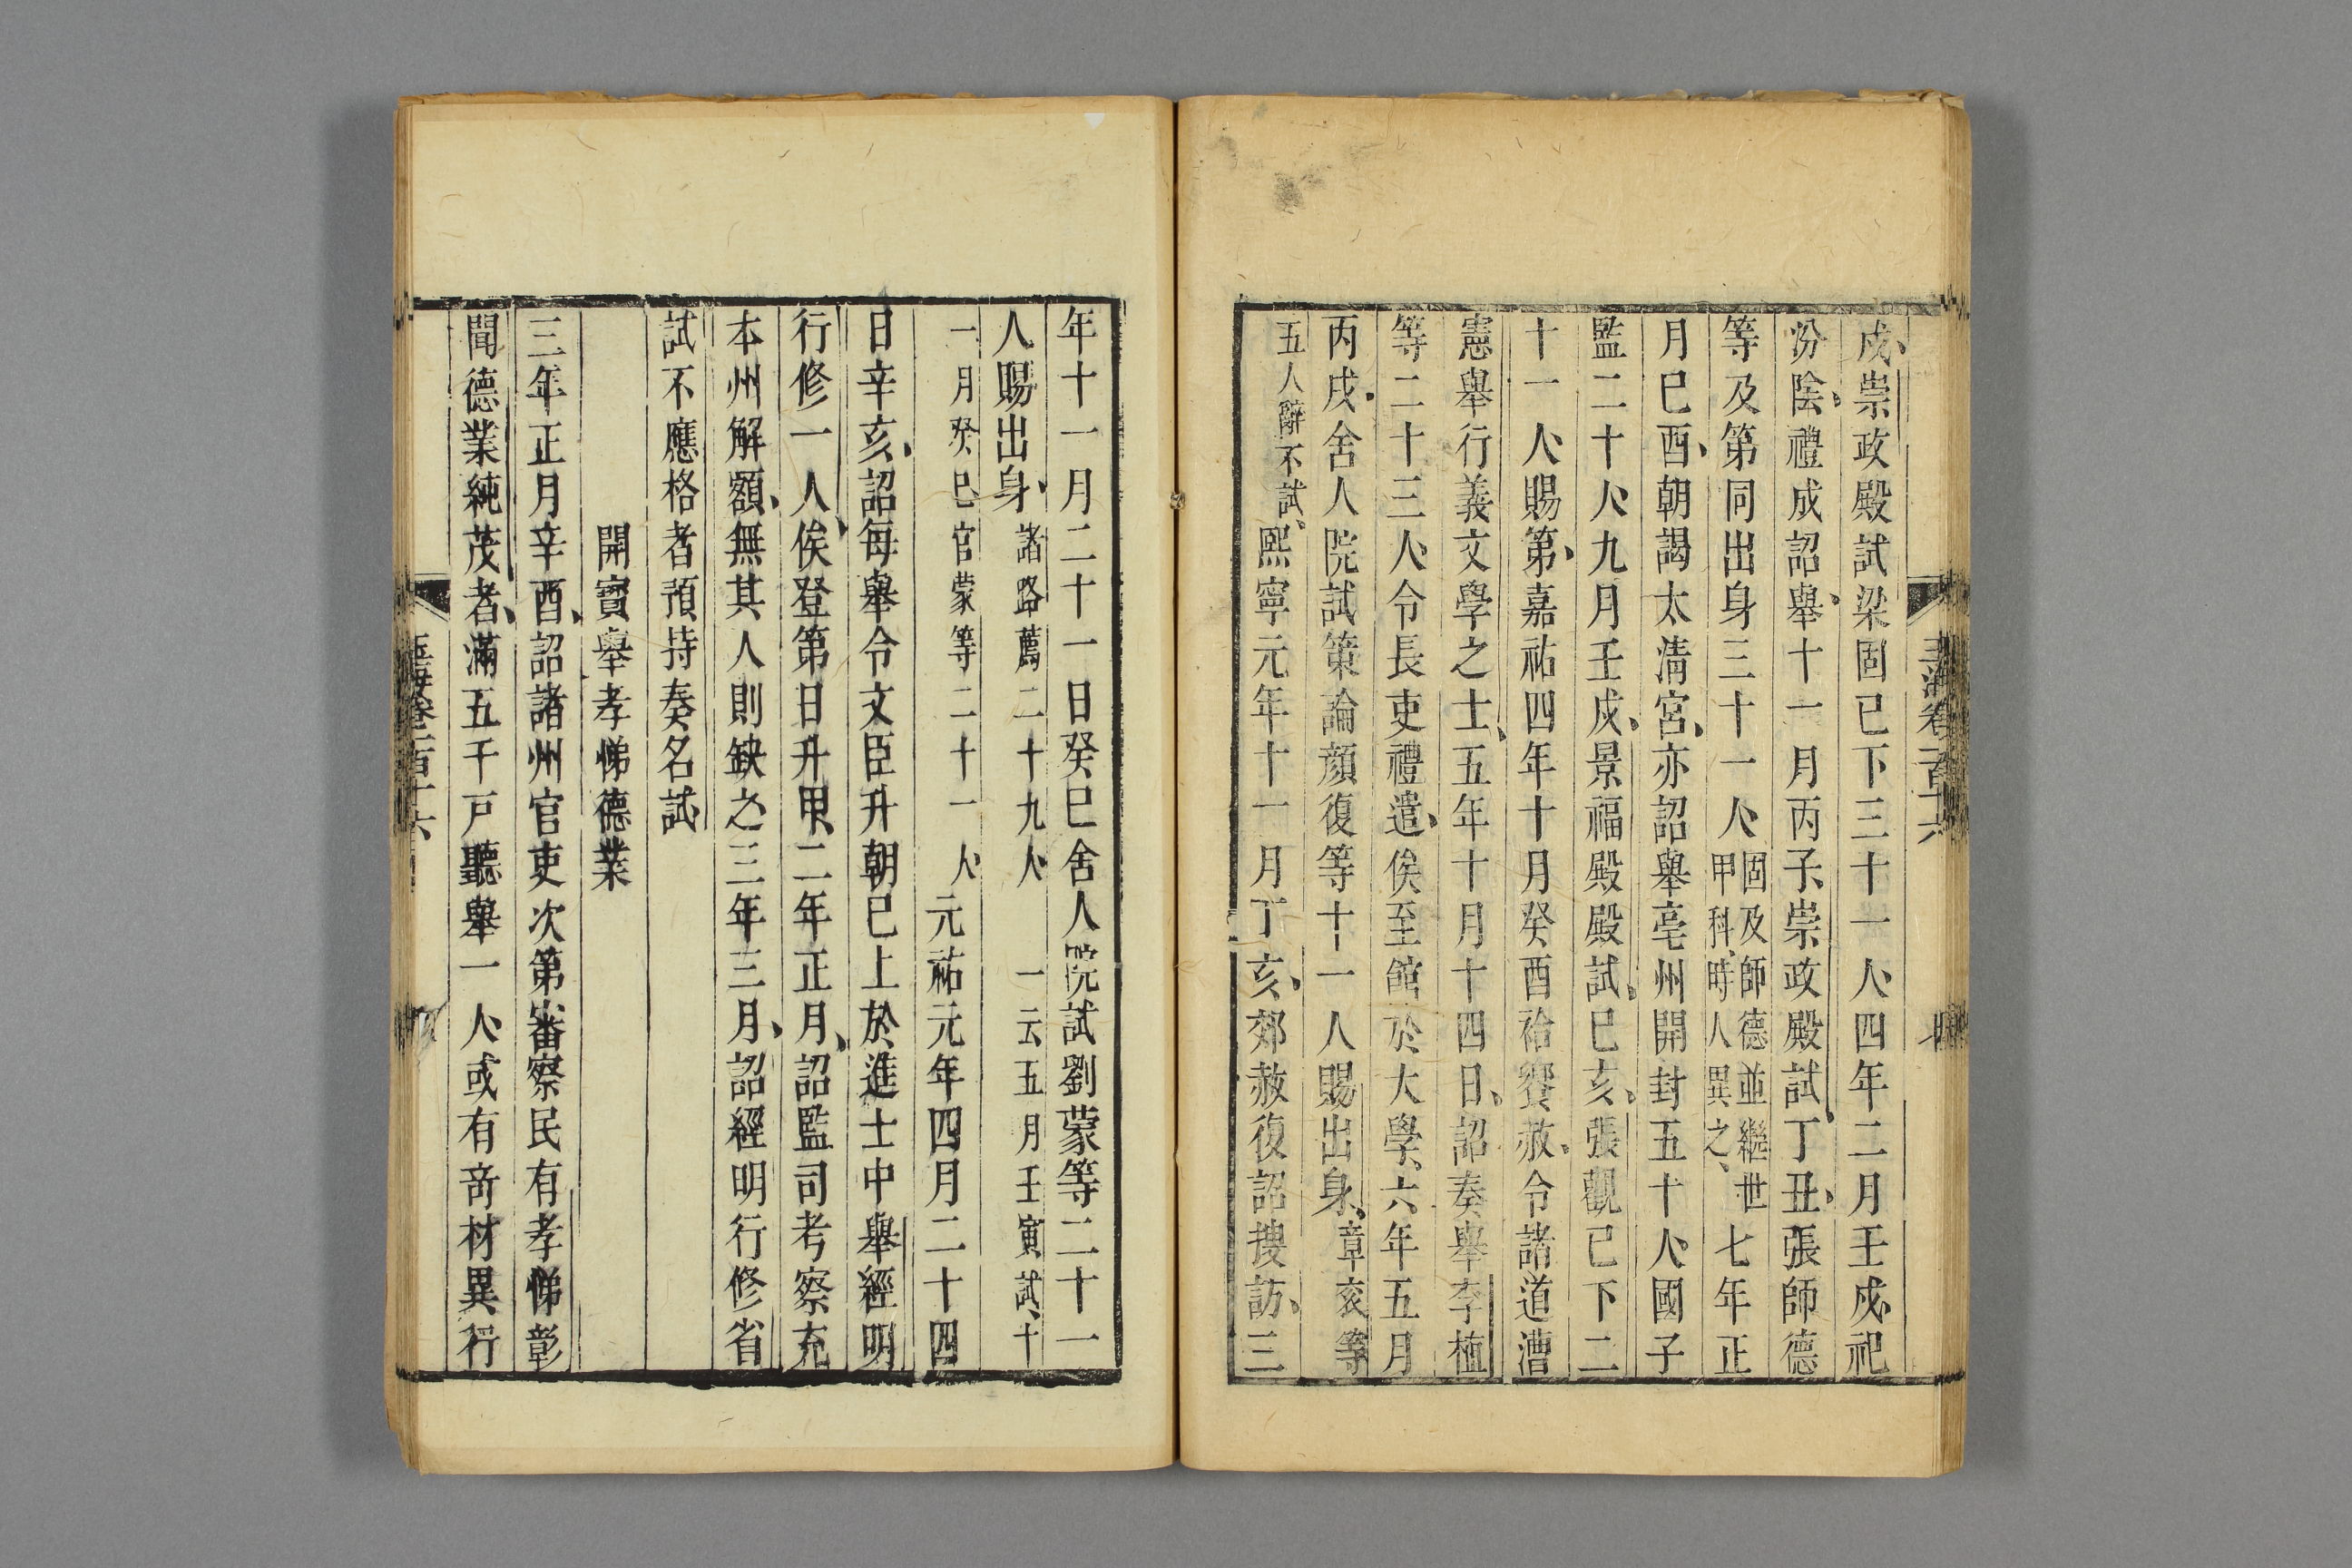 戍崇政殿試梁固已下三十一人四年二月壬戍祀
汾陰禮成詔舉十一月丙子崇政殿試丁丑張師德
等及第同出身三十一人固及師德並繼世甲科時人異之七年正
月巳酉朝謁太清宮亦詔舉亳州開封五十人國子
監二十人九月壬戍景福殿殿試巳亥張觀已下二
十一人賜第嘉祐四年十月癸酉祫饗赦令諸道漕
憲舉行義文學之士五年十月十四日詔奏舉李植
等二十三人令長吏禮遣俟至館於大學六年五月
丙戌舍人院試策論顏復等十一人賜出身章衮等
五人辭不試熙寧元年十一月丁亥郊赦復詔搜訪三
年十一月二十一日癸巳舍人院試劉蒙等二十一
人賜出身諸路薦二十九人一云五月壬寅試十
一月癸巳官蒙等二十一人元祐元年四月二十四
日辛亥詔每舉令文臣升朝已上於進士中舉經明
行修一人俟登第日升甲二年正月詔監司考察充
本州解額無其人則缺之三年三月詔經明行修省
試不應格者預持奏名試
開寶舉孝悌德業
三年正月辛酉詔諸州官吏次第審察民有孝悌彰
聞德業純茂者滿五千戸聽舉一人或有奇材異行